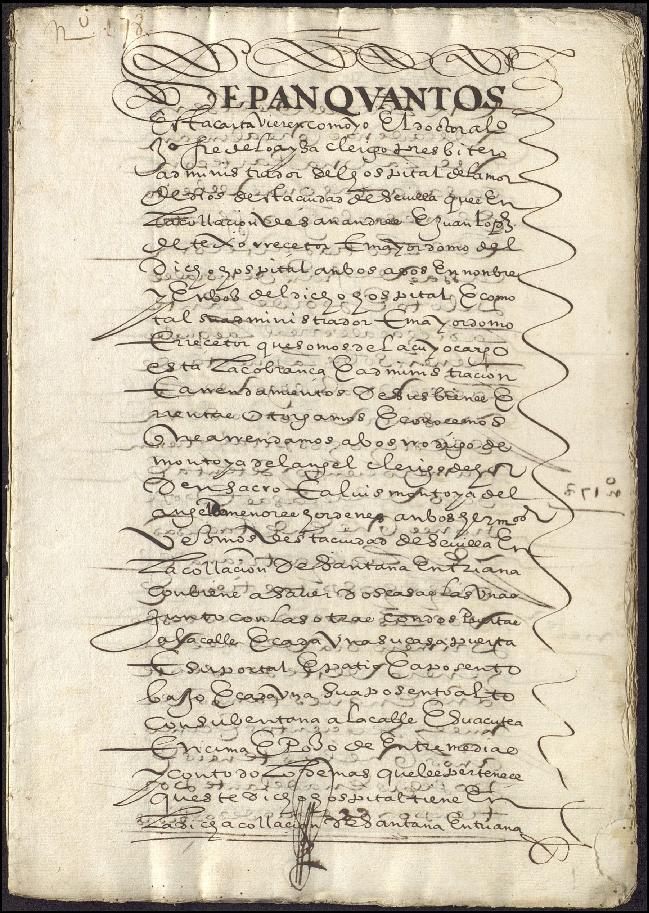 nº 178
SEPAN QVANTOS
Esta carta vieren como yo El doctor al
fre de loaysa clerigo presbitero
administrador del ospital del amor
de dios desta ciudad de sevilla ques En
La collacion de san andres E Juan lopez
del texo rrecetor E mayordomo del
Dicho ospital anbos a dos En nonbre
y En boz del dicho ospital E como
tales administrador E mayordomo
E rrecetor que somos de la a cuyo cargo
esta La cobrança E administracion
E arrendamientos De sus bienes E
rrentas Otorgamos E conocemos
Que arrendamos a bos rrodrigo de
montoya del angel clerigo de
Den sacro E a luis montoya del
angel de menores hordenes anbos hermos
Vezinos desta ciudad de Sevilla En
La collacion De Santana En triana
conbiene a Saver Dos casas Las Unas
Junto con Las otras con dos puertas
a la calle E cada Una su casa puerta
E su portal E patio E aposento
baxo E cada una su aposento alto
con su bentana a la calle E su açutea
En cima E Pozo de Entremedias
y con todo Lo demas que les pertenece
Que este dicho ospital tiene En
La dicha collacion de Santana En triana